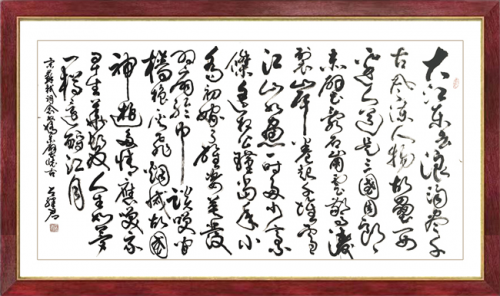 大江东去浪淘尽千
古风流人物故垒西
边人道是三國周郎
赤壁乱石崩雲驚濤
裂岸卷起千堆雪
江山如画一时多少豪
傑遥想公瑾当年小
乔初嫁了雄姿英發
羽扇纶巾谈笑间
樯橹灰飛烟滅故國
神遊多情應笑我
早生華髮人生如夢
一樽還酹江月
宋蘇轼词念奴娇赤壁怀古